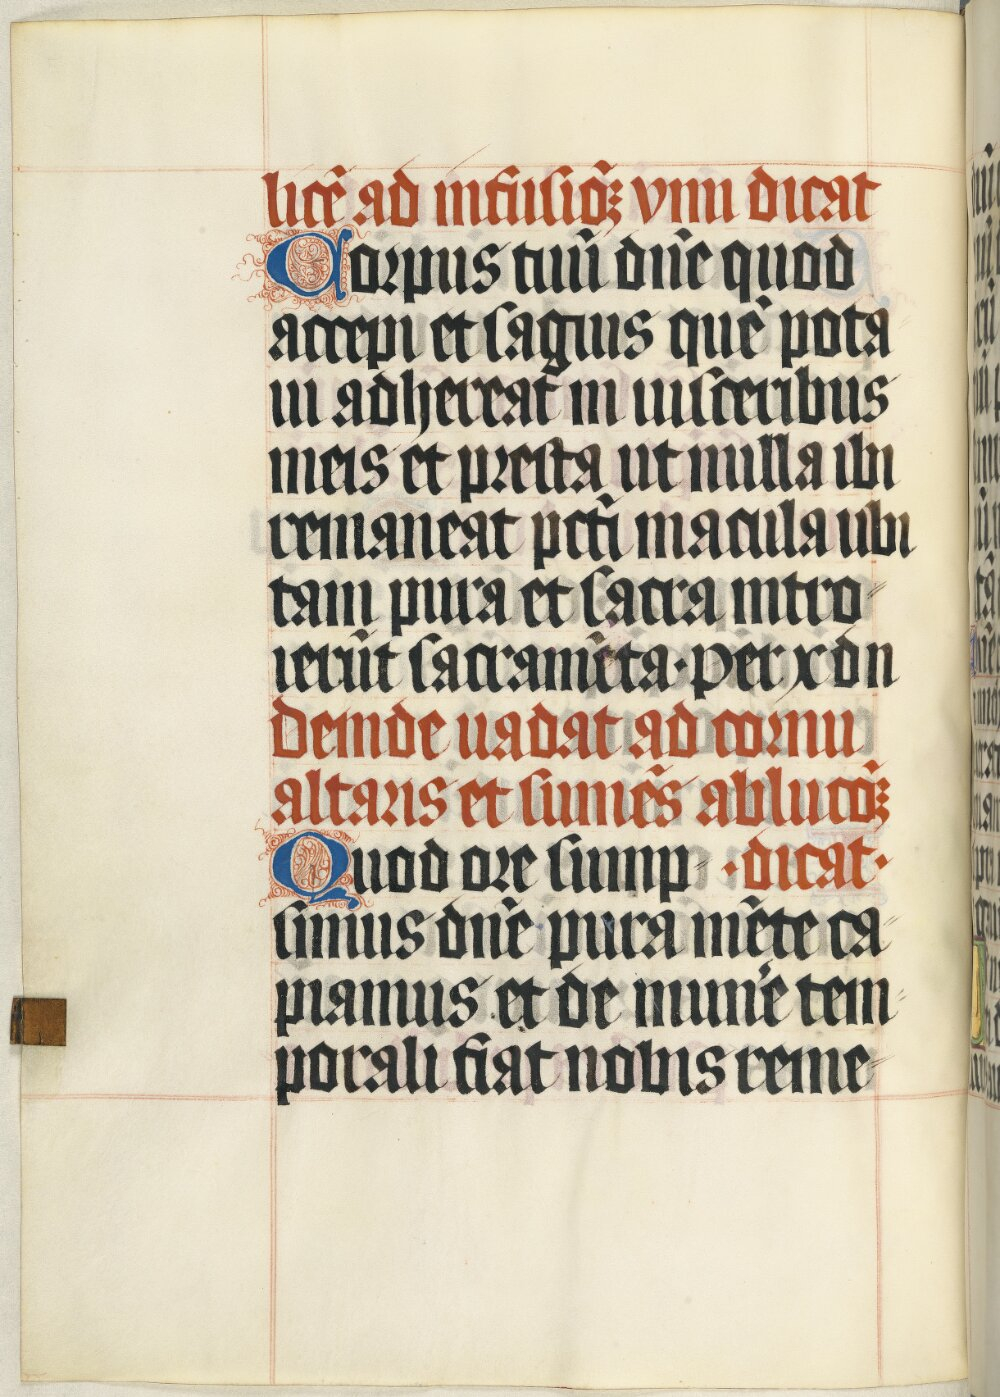 licē ad infusiōꝫ vini dicat
Corpus tuū dn̄e quod
accepi et sāguis quē pota
ui adhereat in uisceribus
meis et presta ut nulla ibi
remaneat pctī macula ubi
tam pura et sacra intro
ierūt sacramēta· per xp̄ dn
deinde uadat ad cornu
altaris et sumēs ablucōꝫ
Quod ore sump ·dicat·
simus dn̄e pura mēte ca
piamus et de mun̄e tem
porali fiat nobis reme